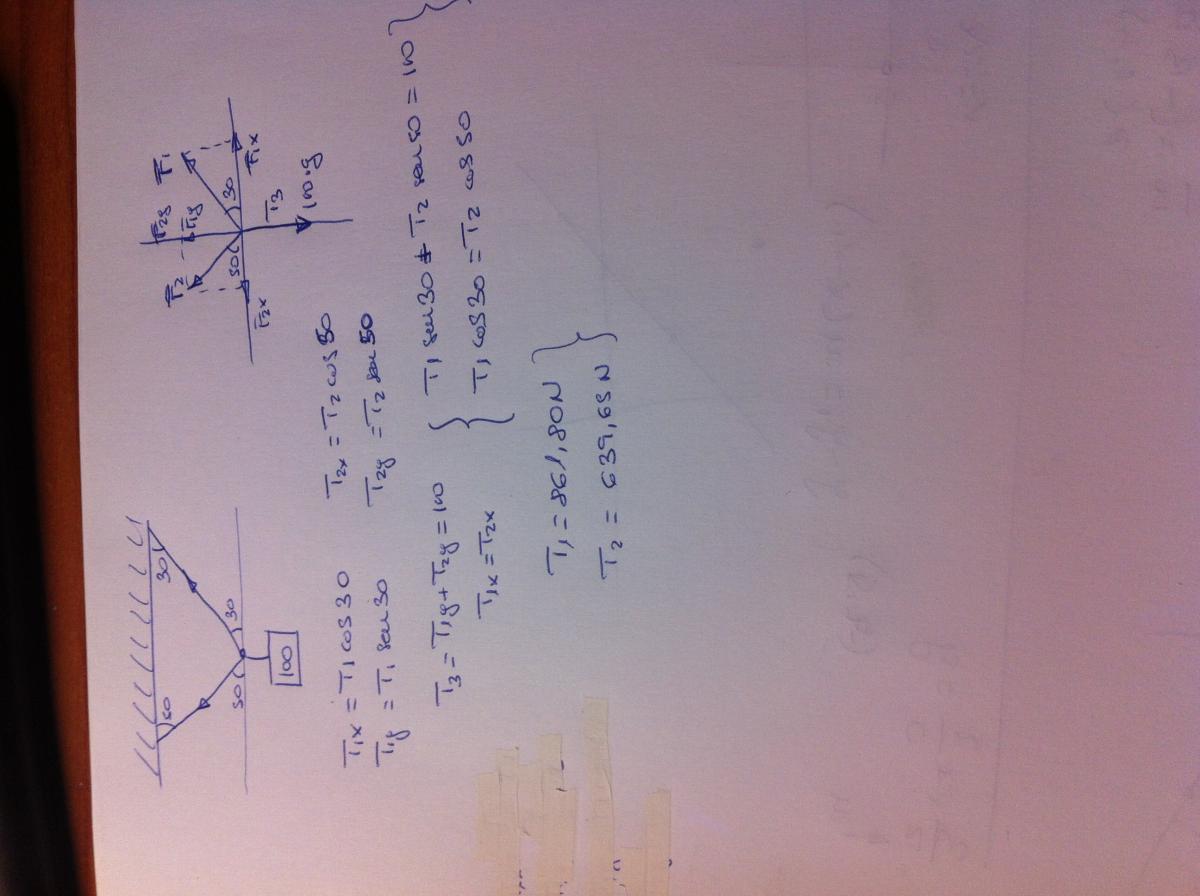 50 30
50 30
100
T2 T2y T1y T1
50 30
T2x T1x
T3
100·g
T1x = T1 cos 30 T2x = T2 cos 50
T1y = T1 sen 30 T2y = T2 sen 50
T3 = T1y + T2y = 100 } T1 sen 30 + T2 sen 50 = 100 }
T1x = T2x } T1 cos 30 = T2 cos 50
T1 = 861,80 N }
T2 = 639,65 N